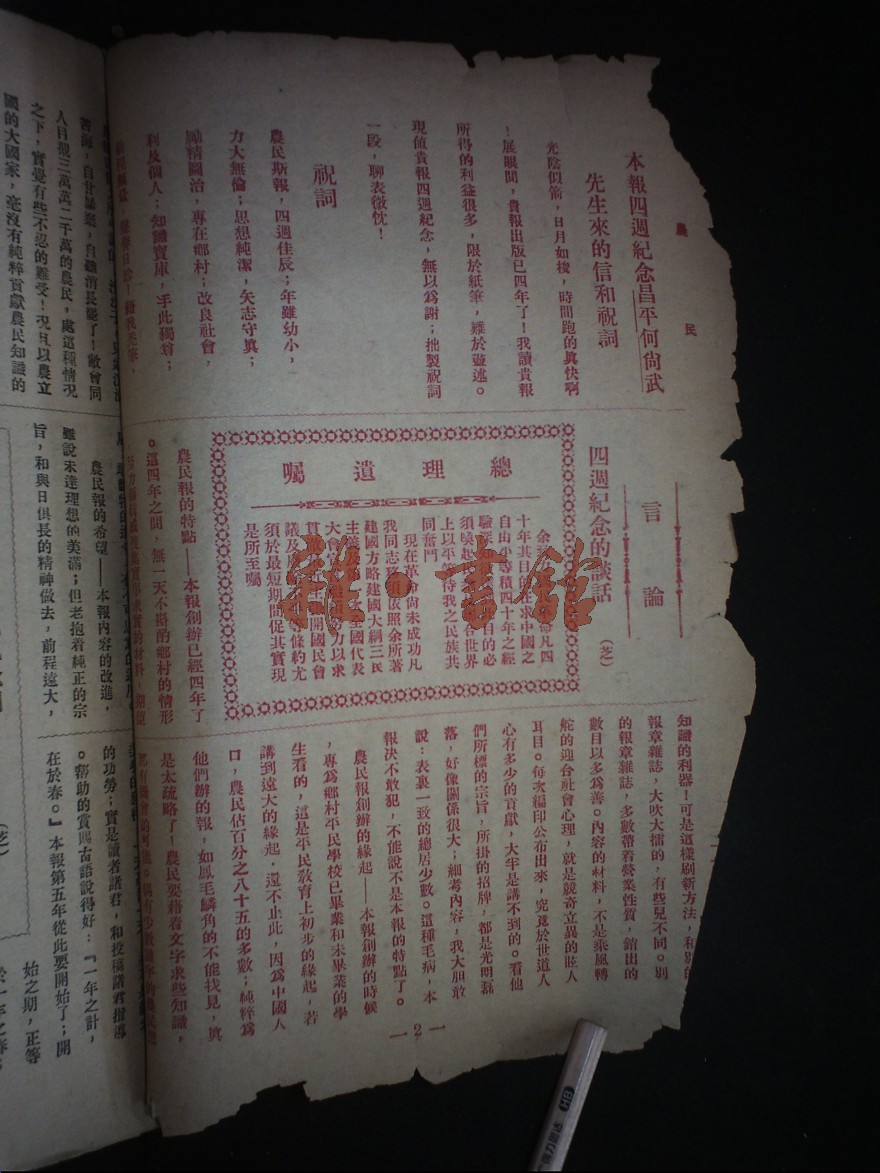 農民
本報四週紀念昌平何尙武
先生來的信和祝詞
光陰似箭，日月如梭，時間跑的眞快啊
！展眼間，貴報出版已四年了！我讀貴報
所得的利益很多，限於紙筆，難於並述。
現値貴報四週紀念，無以爲謝；拙製祝詞
一段，聊表微忱！
祝詞
農民斯報，四週佳辰；年雖幼小，
力大無倫；思想純潔，矢志守眞；
勵精圖治，專在鄉村；改良社會，
利及個人；知識寶庫，手此獨尊；
言論
四週紀念的談話
（芝）
總理遺囑
十年其目的在求中國之
自由平等積四十年之經
上以平等待我之民族共
同奮鬥
現在革命尙未成功凡
我同志務須依照余所著
建國方略建國大綱三民
須於最短期間促其實現
是所至囑
農民報的特點——本報創辦已經四年了
。這四年之間，無一天不斟酌鄉村的情形
知識的利器！可是這樣刷新方法，和別的
報章雜誌，大吹大擂的，有些兒不同。別
的報章雜誌，多數帶着營業性質，銷出的
數目以多爲善。內容的材料，不是乘風轉
舵的迎合社會心理，就是競奇立異的眩人
耳目。每次編印公布出來，究竟於世道人
心有多少的貢獻，大半是講不到的。看他
們所標的宗旨，所掛的招牌，都是光明磊
落，好像關係很大；細考內容，我大胆敢
說：表裏一致的總居少數。這種毛病，本
報決不敢犯，不能說不是本報的特點了。
農民報創辦的緣起——本報創辦的時候
，專爲鄉村平民學校已畢業和未畢業的學
生看的，這是平民敎育上初步的緣起，若
講到遠大的緣起，還不止此，因爲中國人
口，農民佔百分之八十五的多數；純粹爲
他們辦的報，如鳳毛麟角的不能找見，眞
是太疏略了！農民要藉着文字求些知識，
—2—
苦海，自甘暴棄，自難消長罷了！敝會同
人目覩三萬萬二千萬的農民，處這種情況
之下，實覺有些不忍的難受！況且以農立
國的大國家，毫沒有純粹貢獻農民知識的
農民報的希望——本報內容的改進，
雖說未達理想的美滿；但老抱着純正的宗
旨，和與日俱長的精神做去，前程遠大，
的功勞；實是讀者諸君，和投稿諸君指導
。幫助的賞賜古語說得好：『一年之計，
在於春。』本報第五年從此要開始了；開
始之期，正等
（芝）
雜·書館
HB